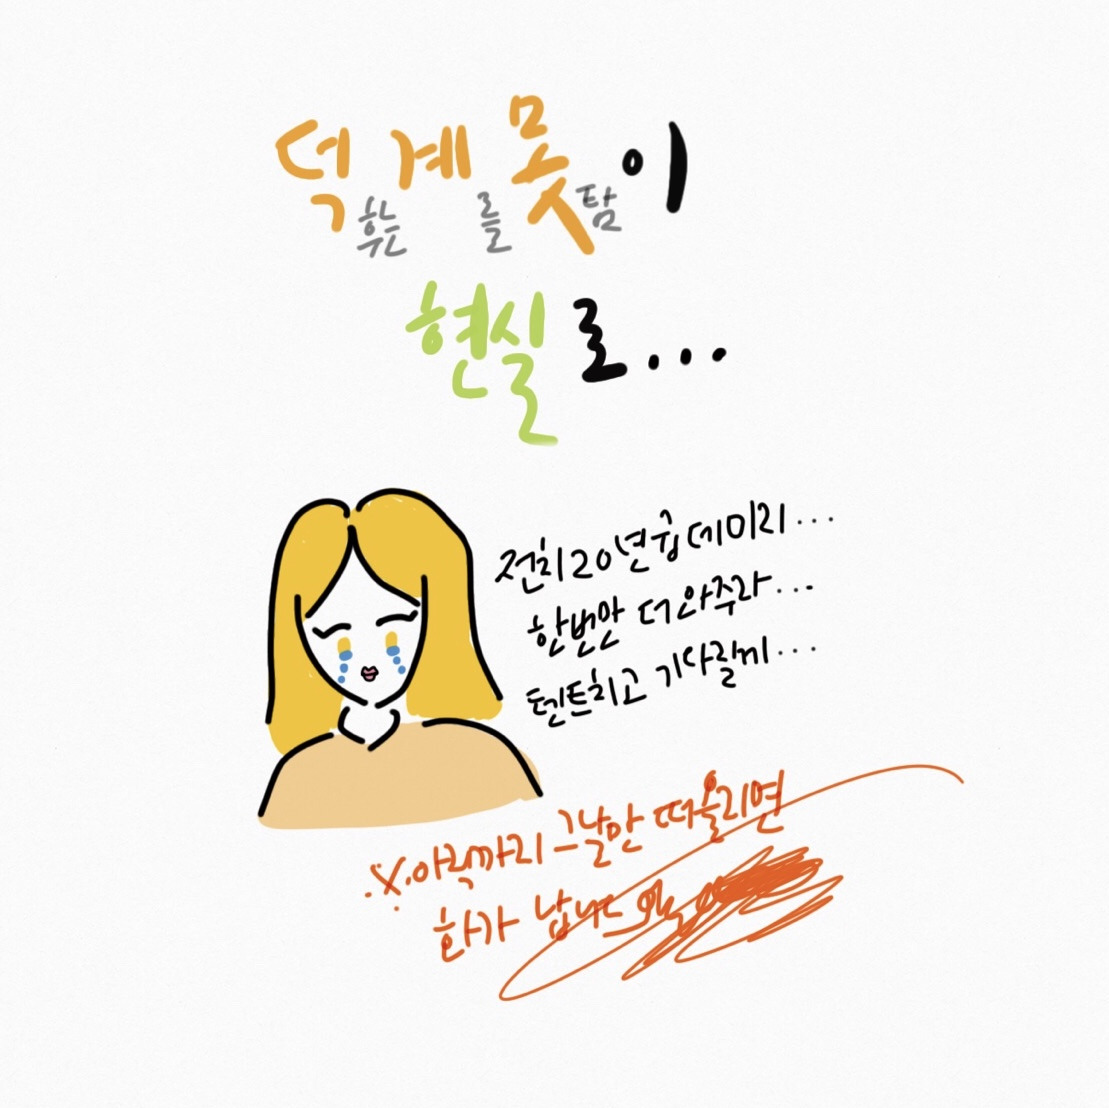 덕후는 계를 못탐이
현실로...
전치20년급 데미지...
한번만 더 와주라...
텐트치고 기다릴께...
※아직까지 그날만 떠올리면
화가 납니다